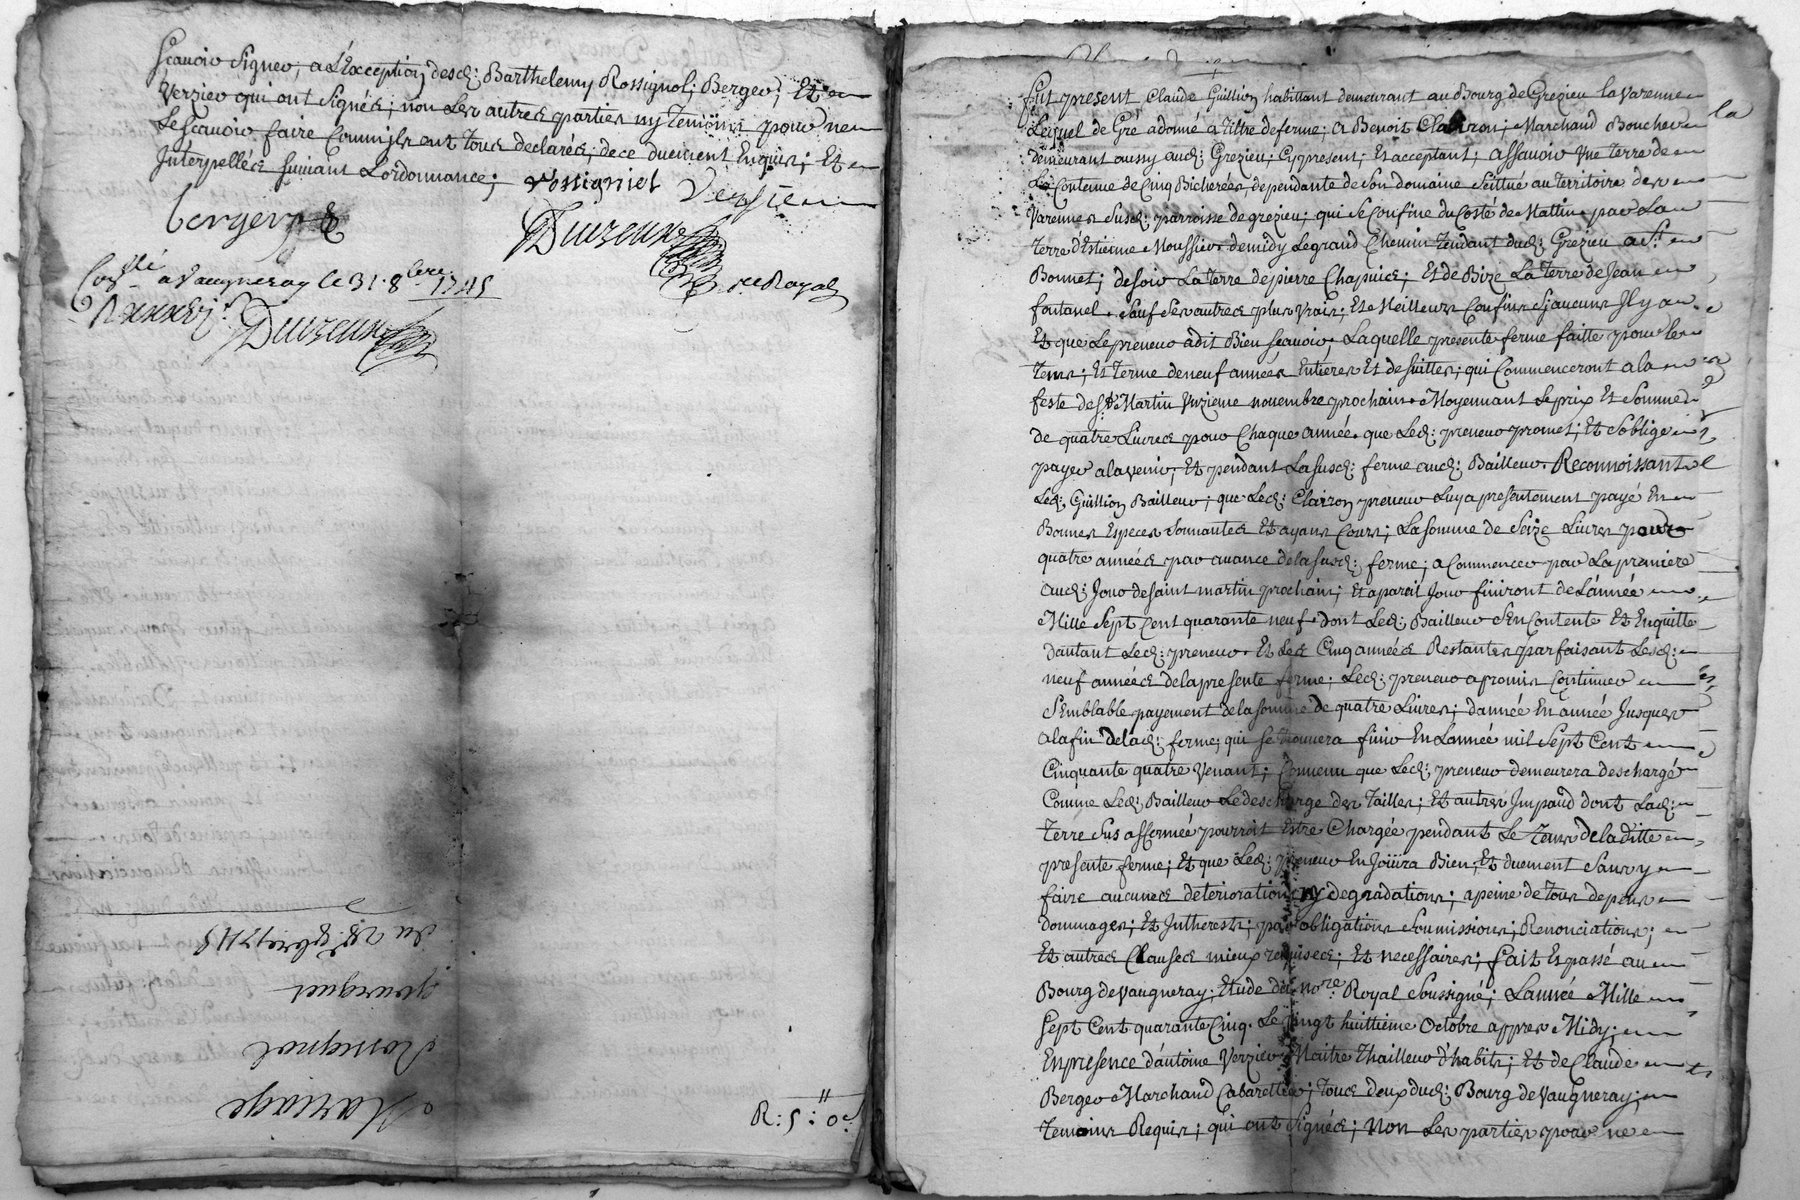 scavoir signer, a L'Exception desd: Barthelemy Rossignol; Berger; Et
Verzier qui ont signés; non Les autres parties ny temoins pour ne
Le scavoir faire Comm'ils ont tous declarés; de ce duement Enquis; Et
Interpellés suivant L'ordonnance;
Rossigniol Versie
berger
Duizeux
no.re Royal
Con.llé a Vaugneray le 31. 8bre. 1745
Duizeux
R: 5: 0s.
Mariage
Romignol
du 28: 8bre 1745
Fut present Claude Guillion habittant demeurant au Bourg de Grezieu la Varenne
Lequel de Gré a donné a tiltre de ferme; a Benoit Clairon; Marchand Boucher
demeurant aussy aud: Grezieu; Cy present; Et acceptant; assavoir Une terre de
La Contenue de Cinq Bicherées dependante de son domaine scittué au territoire des
Varennes susd: parroisse de grezieu; qui se Confine du Costé de Mattin par La
terre d'Estienne Moussier de midy Le grand Chemin tendant dud: Grezieu a St.
Bonnet; de soir La terre de pierre Chapuis; Et de Bize La terre de Jean
fontanel. sauf ses autres plus Vrais; Et Meilleurs Confins sy aucuns Il y a
Et que Le preneur a dit Bien scavoir. Laquelle presente ferme faitte pour le
Tems; Et terme de neuf années Entieres Et de suittes; qui Commenceront a la
feste de St. Martin Vnzieme novembre prochain. Moyennant Le prix Et Somme
de quatre Livres pour Chaque année. que Led: preneur promet; Et s'oblige
payer a la venir, Et pendant La susd: ferme aud: Bailleur. Reconnoissant
Led: Guillion Bailleur; que Led: Clairon preneur Luy a presentement payé En
Bonnes Especes Sonnantes Et ayans Cours; La somme de Seize Livres pour
quatre années par avance de la susd: ferme; a Commencer par La premiere
aud: Jour de saint martin prochain; Et a pareil Jour finiront de L'année
Mille Sept Cent quarante neuf. dont Led: Bailleur s'En Contente Et En quitte
d'autant Led: preneur. Et Les Cinq années Restantes parfaisant Lesd:
neuf années de la presente ferme; Led: preneur a promis Continuer
Semblable payement de la somme de quatre Livres; d'année En année Jusques
a la fin de lad: ferme; qui se trouvera finir En L'année mil sept Cent
Cinquante quatre Venant; Convenu que Led: preneur demeurera deschargé
Comme Led: Bailleur Le descharge des Tailles; Et autres Impaud dont Lad:
Terre sus affermée pourroit Estre Chargée pendant Le tems de la ditte
presente ferme; Et que Led: preneur En Joüira Bien; Et duement Sans y
faire aucunes deteriorations ny degradations; a peine de tous depens
dommages; Et Intherests; par obligations Soumissions; Renonciations;
Et autres Clauses mieux requises; Et necessaires; fait Et passé au
Bourg de Vaugneray; Etude du no.re Royal Soussigné; L'année Mille
Sept Cent quarante Cinq. Le Vingt huittieme Octobre appres Midy;
En presence d'antoine Verzier Maitre Thailleur d'habits; Et de Claude
Berger Marchand Cabarettier; tous deux dud: Bourg de Vaugneray;
temoins Requis; qui ont signés; Non Les parties pour ne